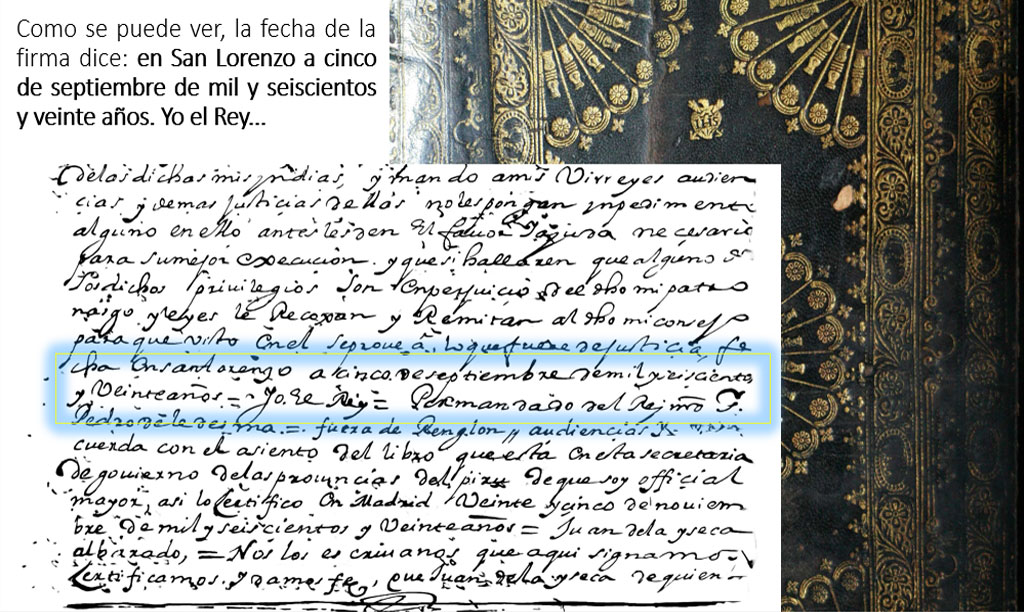 Como se puede ver, la fecha de la
firma dice: en San Lorenzo a cinco
de septiembre de mil y seiscientos
y veinte años. Yo el Rey...
de las dichas mis yndias, y mando a mis Virreyes audien
cias y demas justicias de ellas no les pongan ynpediment
alguno en ello antes les den El favor Y ayuda necesario
para su mejor execucion y que si hallaren que alguno
dichos priuilegios son En perjuicio del dho mi patro
nazgo y leyes le Recoxan y Remitan al dho mi consejo
para que visto En el se prouea lo que fuere de justicia, fe
cha En san Lorenzo a cinco de septiembre de mil y seiscientos
y Veinte años = Yo El Rey = Por mandado del Rey nro
Pedro de ledesma = fuera de Renglon audiencias
cuerda con el asiento del libro que esta En esta secretaria
de gouierno de las prouincias del piru de que soy official
mayor, asi lo Certifico En Madrid Veinte y cinco de nouiem
bre de mil y seiscientos y Veinte años = Juan de la yseca
albarado, = Nos los escriuanos que aqui signamos
Certificamos y damos fe, que Juan de la yseca de quien